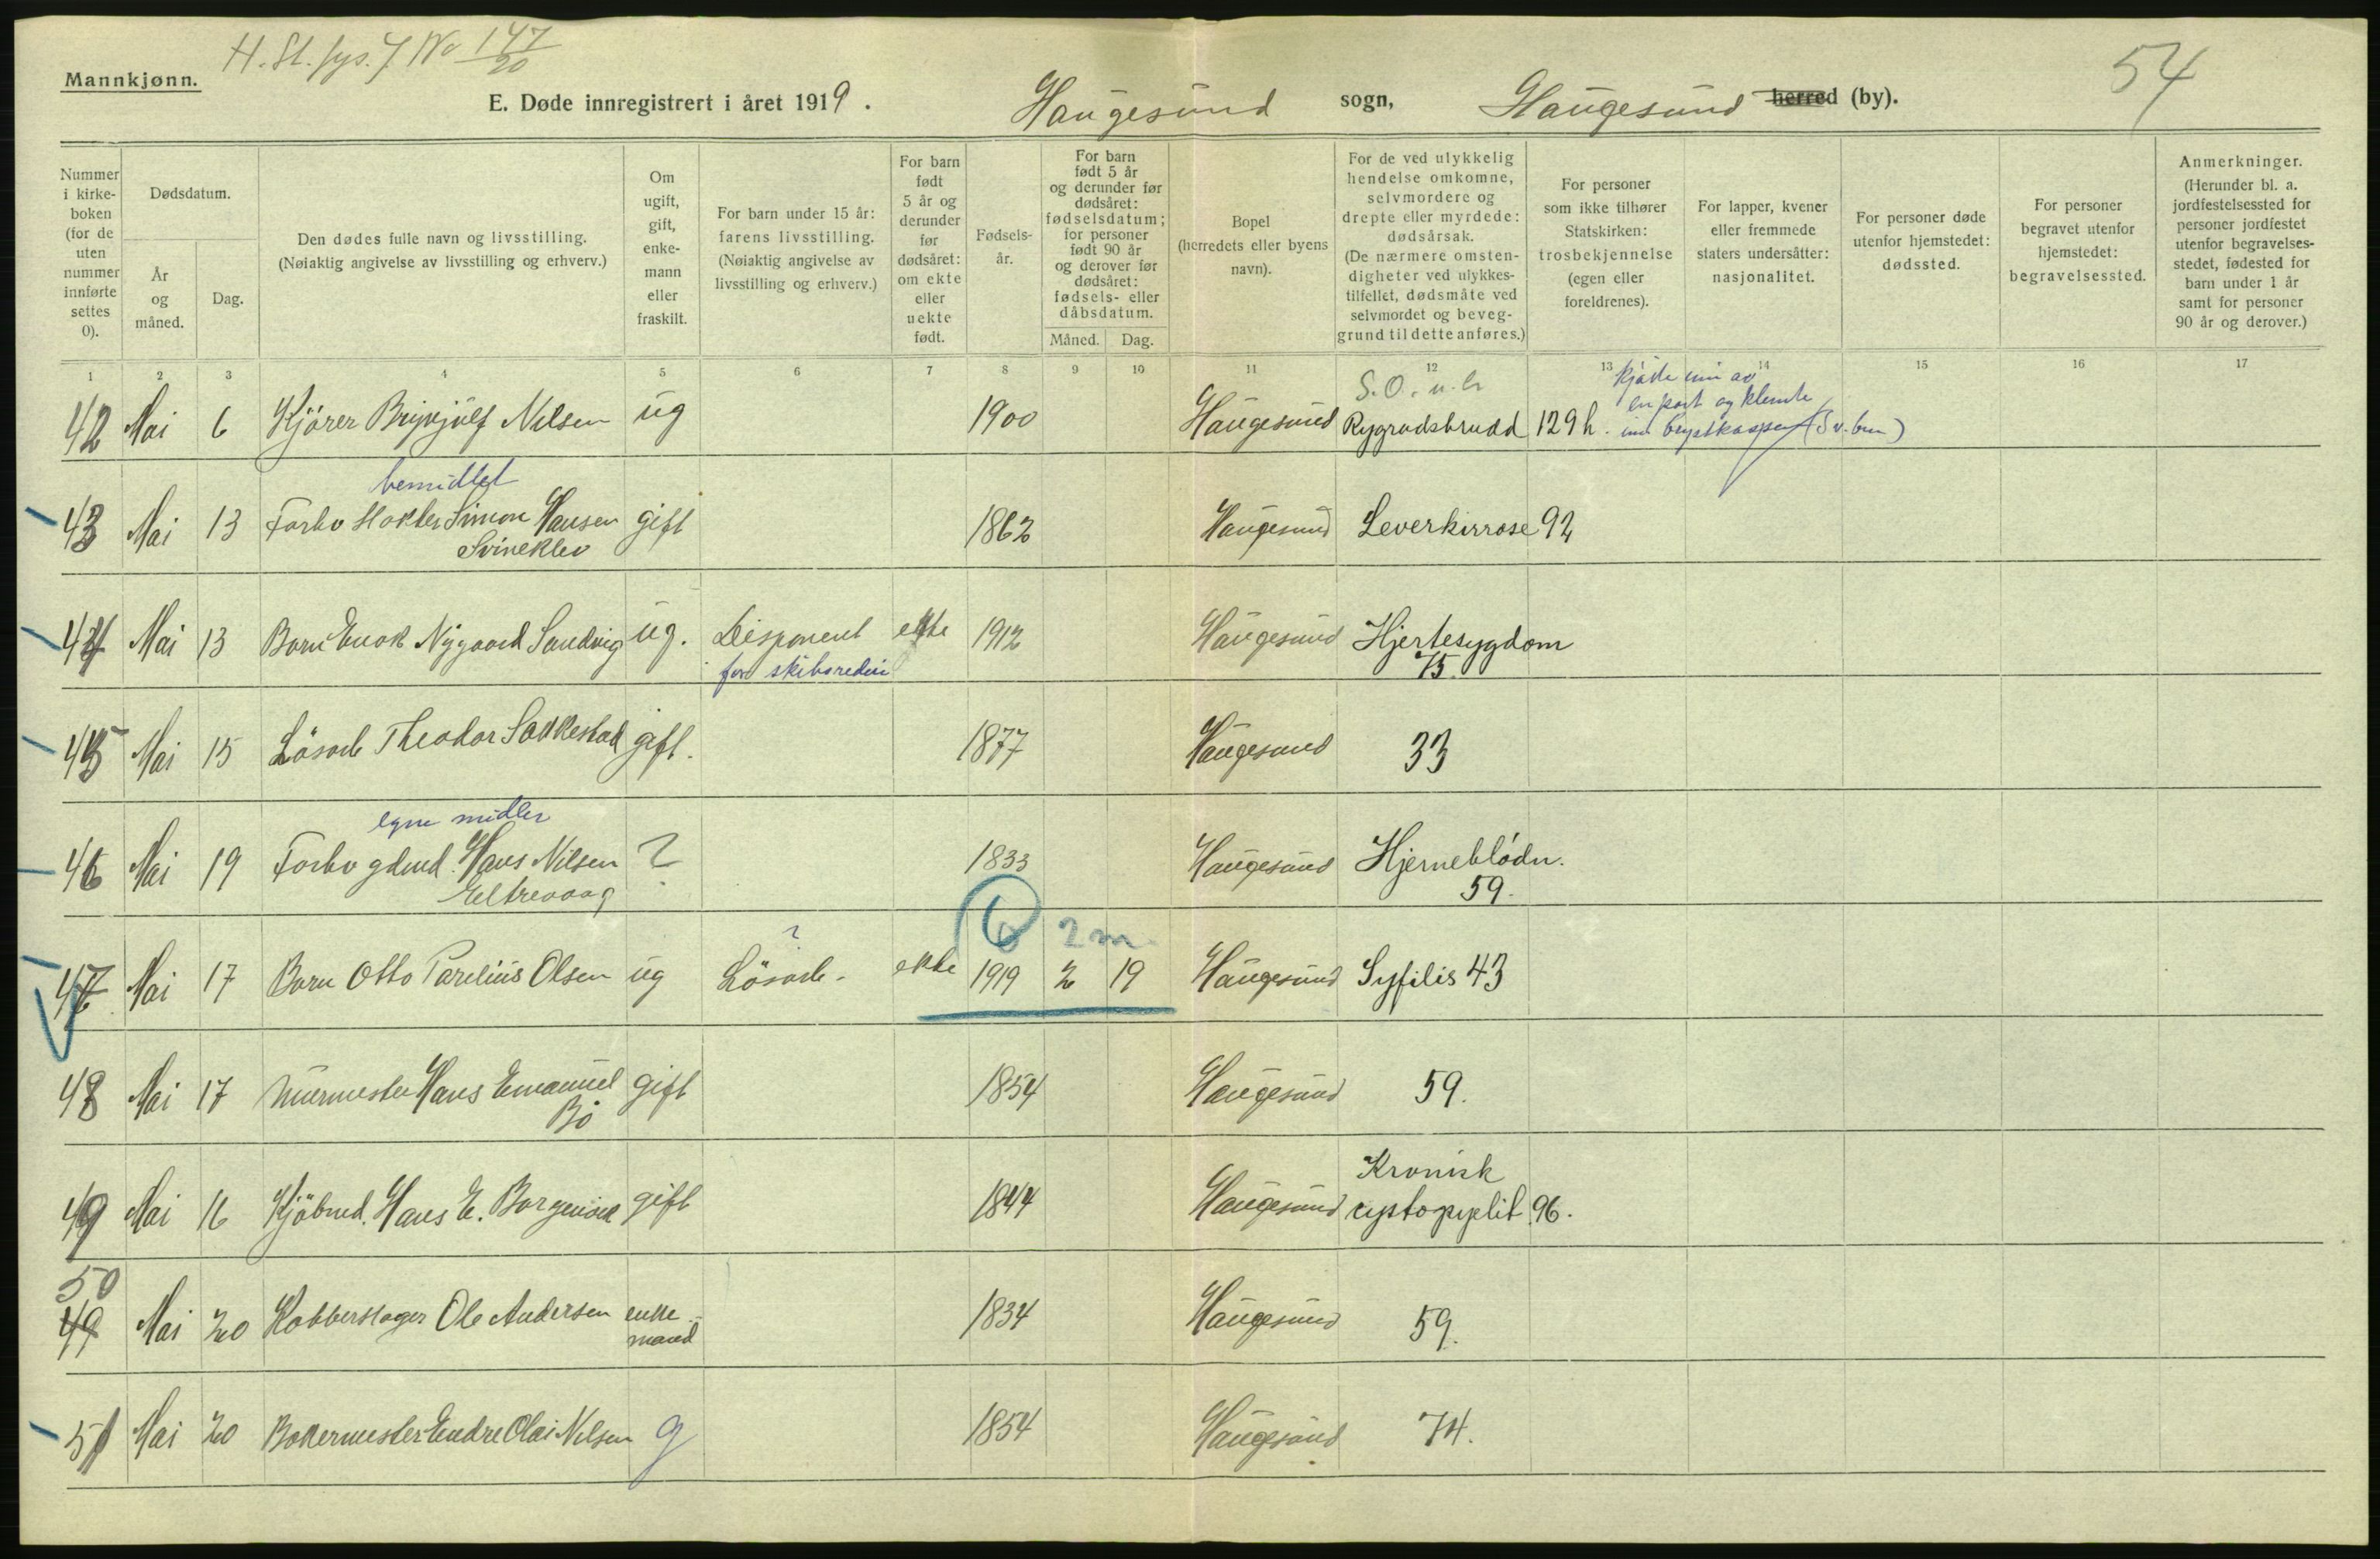 H. St. sys. J No 147/20
54
Mannkjønn.
E. Døde innregistrert i året 1919. Haugesund sogn, Haugesund herred (by).
Nummer i kirke-boken (for de uten nummer innførte settes 0).
Dødsdatum.
År og måned.
Dag.
Den dødes fulle navn og livsstilling.
(Nøiaktig angivelse av livsstilling og erhverv.)
Om ugift, gift, enke-mann eller fraskilt.
For barn under 15 år: farens livsstilling.
(Nøiaktig angivelse av livsstilling og erhverv.)
For barn født 5 år og derunder før dødsåret: om ekte eller uekte født.
Fødsels-år.
For barn født 5 år og derunder før dødsåret: fødselsdatum; for personer født 90 år og derover før dødsåret: fødsels- eller dåbsdatum.
Måned. Dag.
Bopel (herredets eller byens navn).
For de ved ulykkelig hendelse omkomne, selvmordere og drepte eller myrdede: dødsårsak.
(De nærmere omsten-digheter ved ulykkes-tilfellet, dødsmåte ved selvmordet og beveg-grund til dette anføres.)
For personer som ikke tilhører Statskirken: trosbekjennelse (egen eller foreldrenes).
For lapper, kvener eller fremmede staters undersåtter: nasjonalitet.
For personer døde utenfor hjemstedet: dødssted.
For personer begravet utenfor hjemstedet: begravelsessted.
Anmerkninger.
(Herunder bl. a. jordfestelsessted for personer jordfestet utenfor begravelses-stedet, fødested for barn under 1 år samt for personer 90 år og derover.)
1 2 3 4 5 6 7 8 9 10 11 12 13 14 15 16 17
S.O.
en port og klemte
42 Mai 6 Kjörer Brynjulf Nilsen ug 1900 Haugesund Rygradsbrudd 129 h. inn brystkassen
bemidlet
43 Mai 13 Forhv Simon Hansen gift 1862 Haugesund Leverkirrose 92
Svineklev
44 Mai 13 Barn Enok Nygaard Sandvig ug. Disponent ekte 1912 Haugesund Hjertesygdom
for skibsrederi 75.
45 Mai 15 Lösarb Theodor Sakkestad gift. 1877 Haugesund 33
egne midler
46 Mai 19 Forhv gdmd. Hans Nilsen ? 1833 Haugesund Hjerneblödn.
Eltrevaag 59.
? 6 2 m.
47 Mai 17 Barn Otto Parelius Olsen ug Lösarb. ekte 1919 2 19 Haugesund Syfilis 43
48 Mai 17 Murmester Hans Emanuel gift 1854 Haugesund 59.
Bö
Kronisk
49 Mai 16 Kjöbmd. Hans E. Borgenvik gift 1844 Haugesund cystopyelit 96.
50
49 Mai 20 Kobberslager Ole Andersen enke- 1834 Haugesund 59.
mand
51 Mai 20 Bakermester Endre Olai Nilsen g 1854 Haugesund 74.